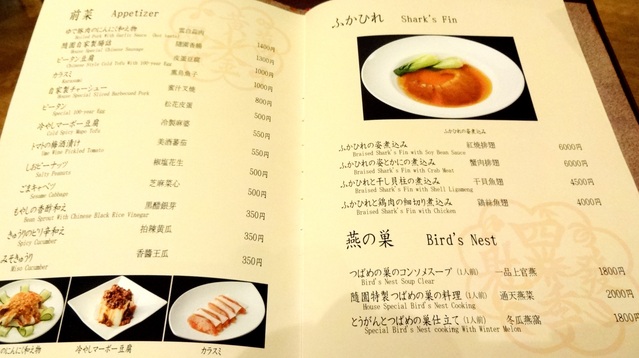 前菜 Appetizer
ゆで豚肉のにんにく和え物 雲白晶肉
Boiled Pork With Garlic Sauce 1400円
随園自家製腸詰 隨園香腸
House Special Chinese Sausage 1300円
ピータン豆腐 皮蛋豆腐
Chinese Style Cold Tofu With 100-year Egg 1000円
カラスミ 烏魚子
Karasumi 1000円
自家製チャーシュー 蜜汁叉焼
House Special Sliced Barbecued Pork 800円
ピータン 松花皮蛋
Special 100-year Egg 500円
冷やしマーボー豆腐 冷製麻婆
Cold Spicy Mapo Tofu 550円
トマトの梅酒漬け 美酒蕃茄
Ume Wine Pickled Tomato 550円
しおピーナッツ 椒塩花生
Salty Peanuts 350円
ごまキャベツ 芝麻菜心
Sesame Cabbage 350円
もやしの香酢和え 黒醋銀芽
Bean Sprout With Chinese Black Rice Vinegar 350円
きゅうりのピリ辛和え 拍辣黄瓜
Spicy Cucumber 350円
みそきゅうり 香醬王瓜
Miso Cucumber 350円
のにんにく和え物
冷やしマーボー豆腐
カラスミ
ふかひれ Shark's Fin
ふかひれの姿煮込み
ふかひれの姿煮込み 紅焼排翅 6000円
Braised Shark's Fin with Soy Bean Sauce
ふかひれの姿とかにの煮込み 蟹肉排翅 6000円
Braised Shark's Fin with Crab Meat
ふかひれと干し貝柱の煮込み 干貝魚翅 4500円
Braised Shark's Fin with Shell Ligameng
ふかひれと鶏肉の細切り煮込み 鶏絲魚翅 4000円
Braised Shark's Fin with Chicken
燕の巣 Bird's Nest
つばめの巣のコンソメスープ (1人前) 一品上官燕 1800円
Bird's Nest Soup Clear
随園特製つばめの巣の料理 (1人前) 通天燕菜 2000円
House Special Bird's Nest Cooking
とうがんとつばめの巣仕立て (1人前) 冬瓜燕窩 1800円
Special Bird's Nest cooking With Winter Melon